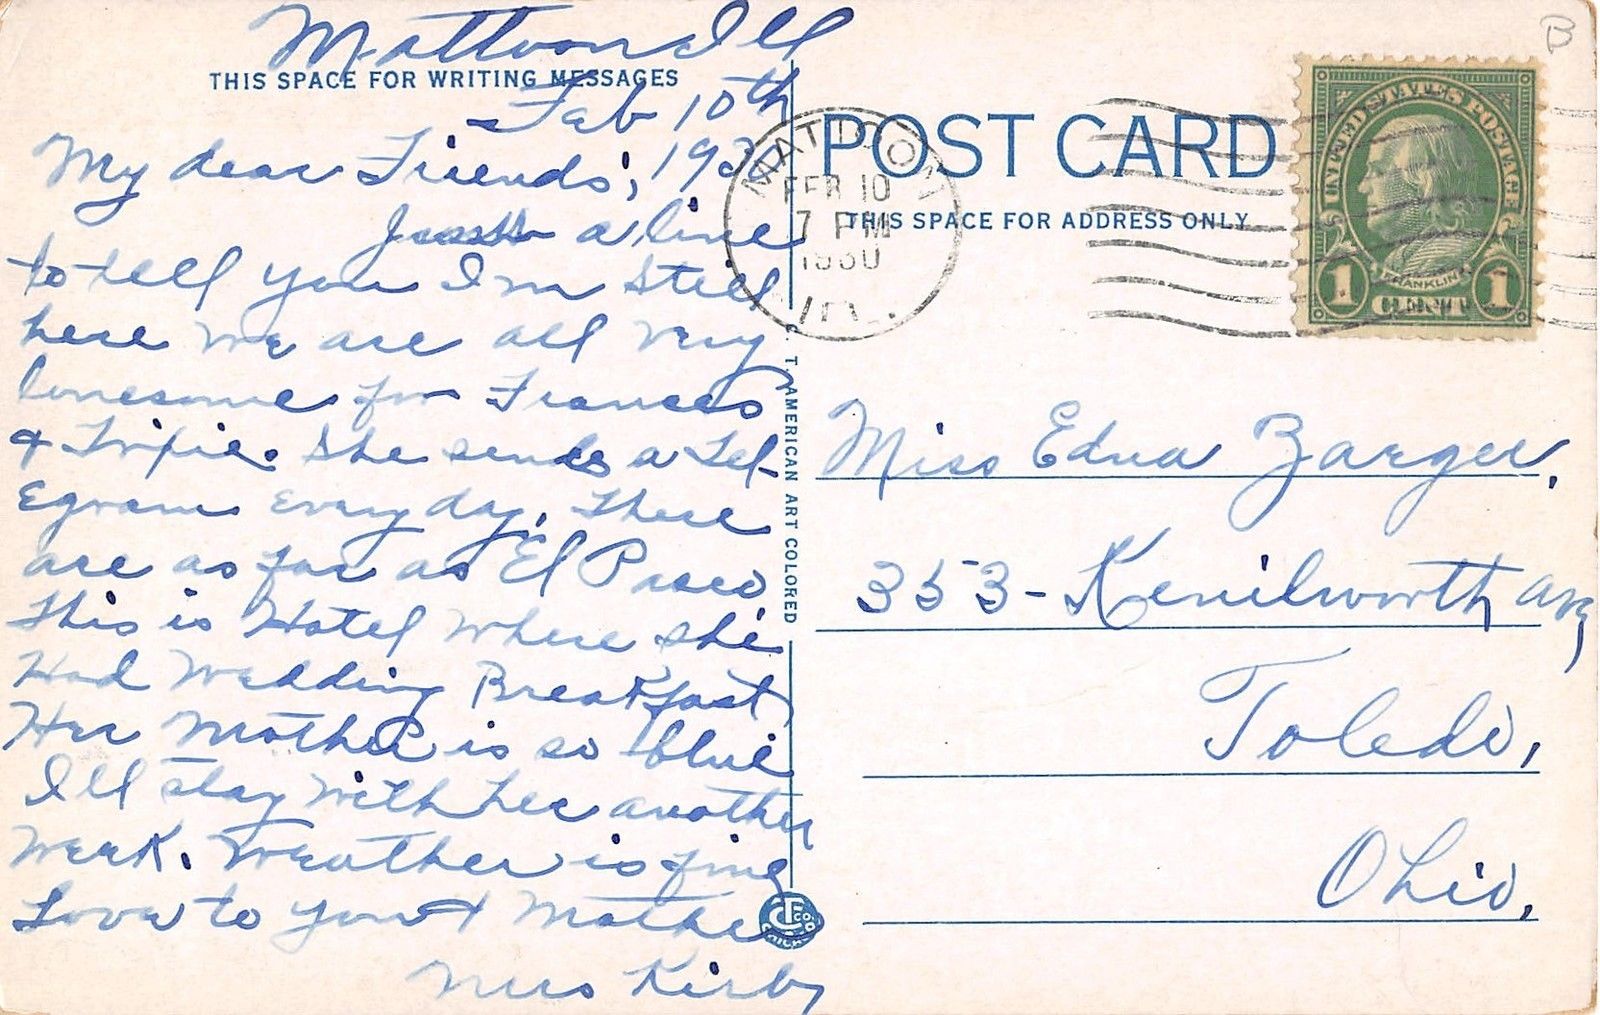 Mattoon Ill
THIS SPACE FOR WRITING MESSAGES
Feb 10th
My dear Friends', 1930
Just a line
to tell you I'm still
here we are all very
lonesome for Frances
& Tripie. She sends a Tel-
egram every day. There
are as far as El Paseo.
This is Hotel where she
Had Wedding Breakfast
Her Mother is so blue
I'll stay with her another
week. Weather is fine
Love to you & Mother
Mrs Kirby
C. T. AMERICAN ART COLORED
POST CARD
THIS SPACE FOR ADDRESS ONLY
MATTOON
FEB 10
7 PM
1930
ILL.
UNITED STATES POSTAGE
FRANKLIN
1 1
B
Miss Edna Zaeger,
353-Kenilworth Ave,
Toledo,
Ohio,